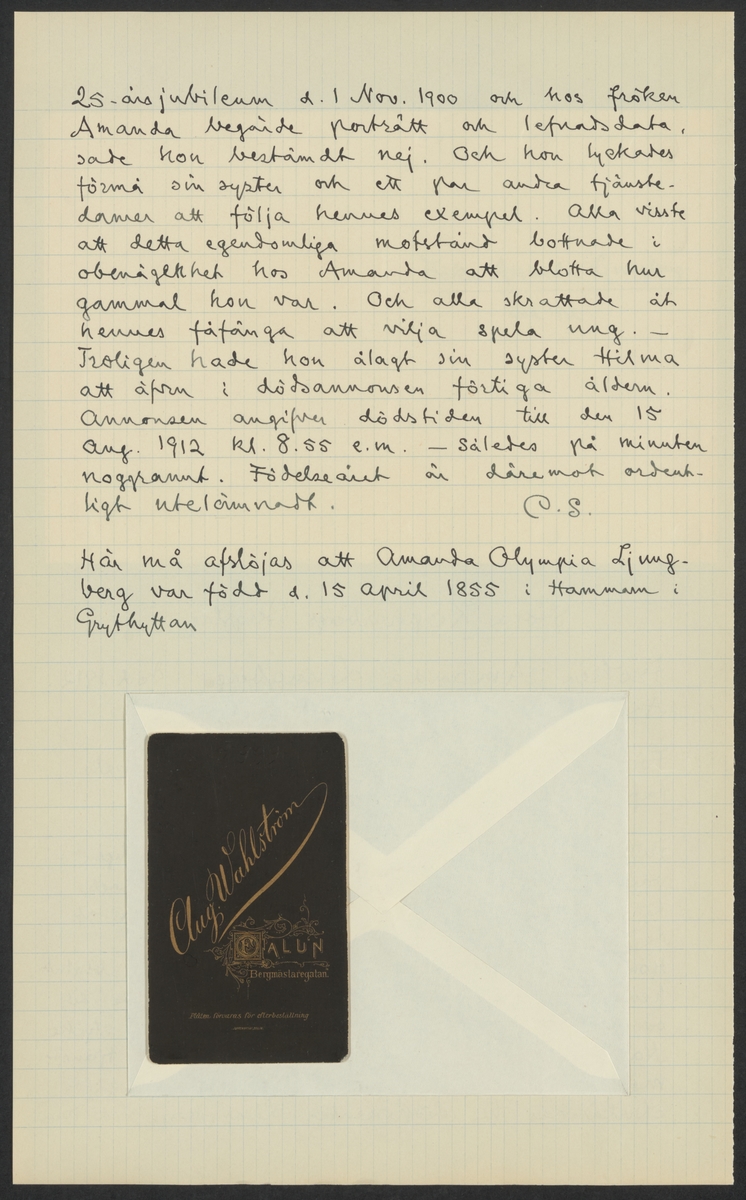 25-årsjubileum d. 1 Nov. 1900 och hos fröken
Amanda begärde porträtt och lefnadsdata,
sade hon bestämdt nej. Och hon lyckades
förmå sin syster och ett par andra tjänste-
damer att följa hennes exempel. Alla visste
att detta egendomliga motstånd bottnade i
obenägenhet hos Amanda att blotta hur
gammal hon var. Och alla skrattade åt
hennes fåfänga att vilja spela ung. —
Troligen hade hon ålagt sin syster Hilma
att äfven i dödsannonsen förtiga åldern.
Annonsen angifver dödstiden till den 15
Aug. 1912 kl. 8.55 e.m. — Således på minuten
noggrannt. Födelseåret är däremot ordent-
ligt utelämnadt. C.S.
Här må afslöjas att Amanda Olympia Ljung-
berg var född d. 15 April 1855 i Hammarn i
Grythyttan
Aug. Wahlström
FALUN
Bergmästaregatan.
Plåten förvaras för efterbeställning